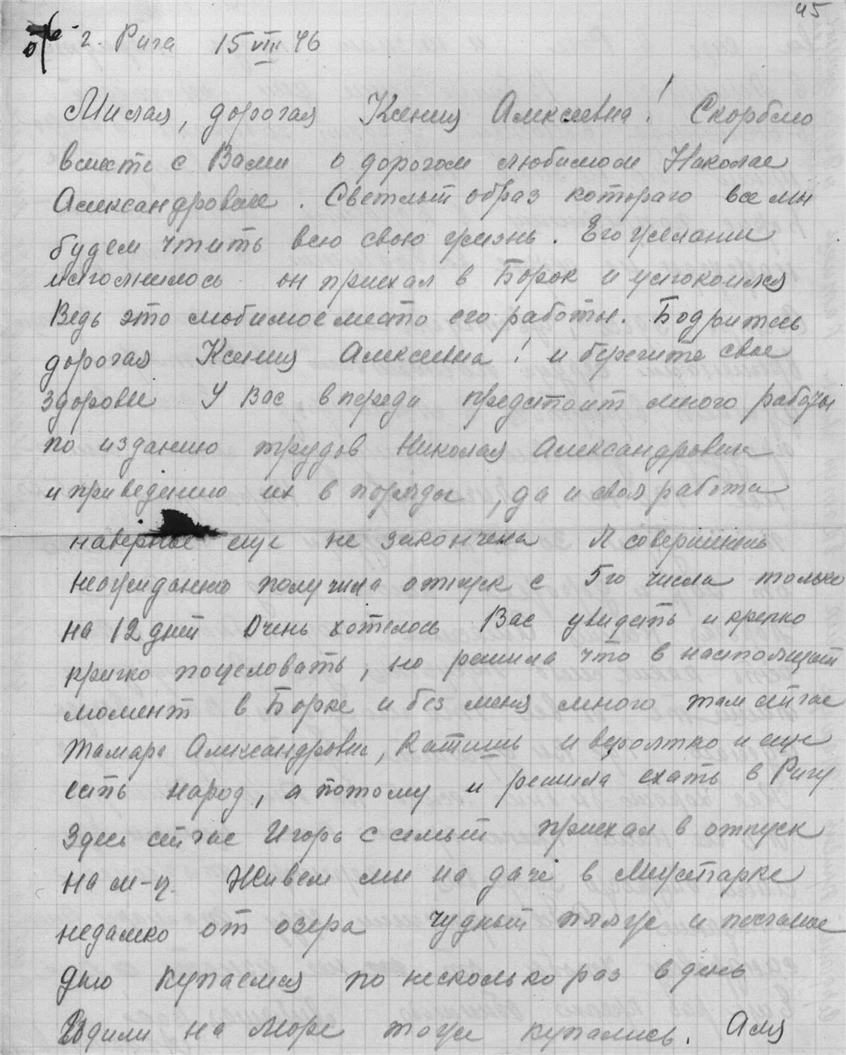 45
г. Рига 15 VIII 46
Милая, дорогая Ксения Алексеевна! Скорблю
вместе с Вами о дорогом любимом Николае
Александровиче. Светлый образ котораго все мы
будем чтить всю свою жизнь. Его желание
исполнилось он приехал в Борок и успокоился
Ведь это любимое место его работы. Бодритесь
дорогая Ксения Алексеевна! и берегите свое
здоровье У Вас впереди предстоит много работы
по изданию трудов Николая Александровича
и приведению их в порядок, да и своя работа
наверное еще не закончена Я совершенно
неожиданно получила отпуск с 5го числа только
на 12 дней Очень хотелось Вас увидеть и крепко
крепко поцеловать, но решила что в настоящий
момент в Борке и без меня много там сейчас
Тамара Александровна, Катишь и вероятно и еще
есть народ, а потому и решила ехать в Ригу
Здесь сейчас Игорь с семьей приехал в отпуск
на м-ц. Живем мы на даче в Межапарке
недалеко от озера чудный пляж и послание
дню купаемся по несколько раз в день
Ездили на море тоже купались. Аля